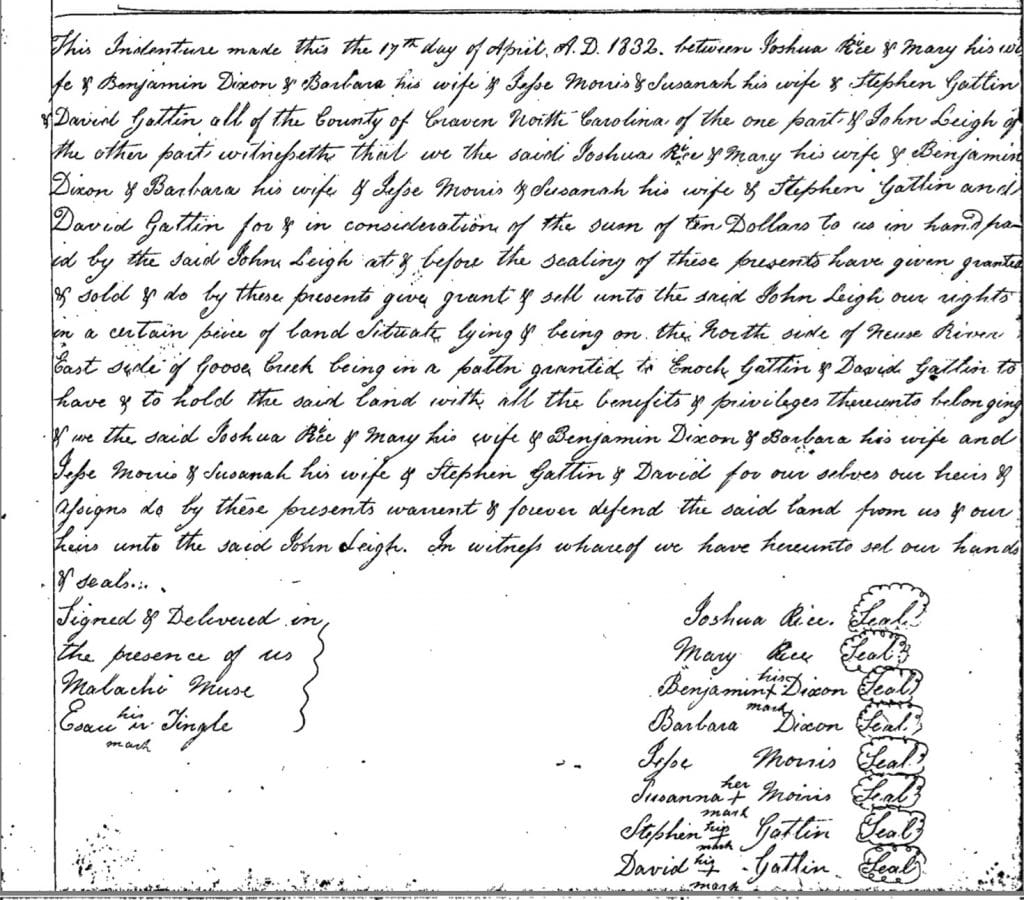 This Indenture made this the 17th day of April, A.D. 1832. between Joshua Rice & Mary his wi
fe & Benjamin Dixon & Barbara his wife & Jesse Morris & Susanah his wife & Stephen Gattin
& David Gattin all of the County of Craven North Carolina of the one part & John Leigh of
the other part witnesseth that we the said Joshua Rice & Mary his wife & Benjamin
Dixon & Barbara his wife & Jesse Morris & Susanah his wife & Stephen Gatlin and
David Gattin for & in consideration of the sum of ten Dollars to us in hand pa-
id by the said John Leigh at & before the sealing of these presents have given granted
& sold & do by these presents give grant & sell unto the said John Leigh our rights
in a certain peice of land Situate lying & being on the North side of Neuse River
East side of Goose Creek being in a paten granted to Enoch Gattin & David Gatlin to
have & to hold the said land with all the benefits & privileges thereunto belonging
& we the said Joshua Rice & Mary his wife & Benjamin Dixon & Barbara his wife and
Jesse Morris & Susanah his wife & Stephen Gattin & David for our selves our heirs &
assigns do by these presents warrent & forever defend the said land from us & our
heirs unto the said John Leigh. In witness whareof we have hereunto set our hands
& seals...
Signed & Delivered in
the presence of us
Malachi Muse
Esau his Tingle
mark
Joshua Rice. Seal
Mary Rice Seal
Benjamin his + Dixon Seal
mark
Barbara Dixon Seal
Jesse Morris Seal
Susanna her + Morris Seal
mark
Stephen his + Gattin Seal
mark
David his + Gattin Seal
mark